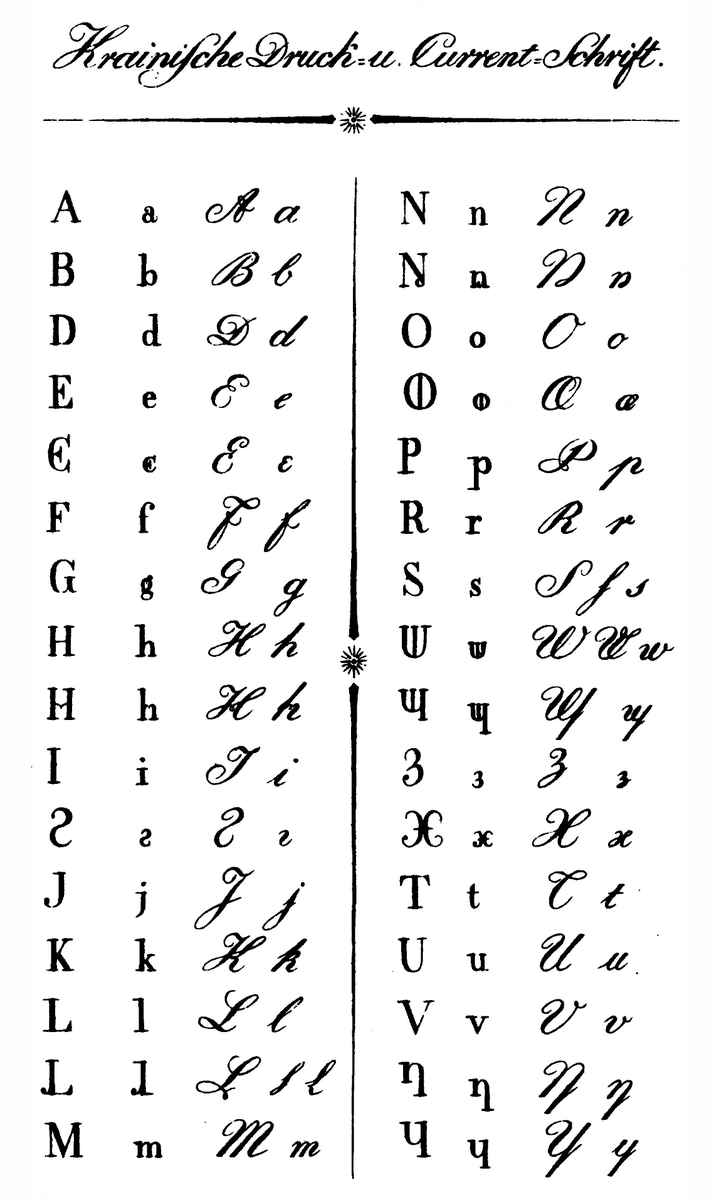 Krainiſche Druck=u. Current=Schrift.
A a A a
B b B b
D d D d
E e E e
Є є Ɛ ɛ
F f F f
G g G g
H h H h
H h H h
I i I i
Ƨ ƨ Ƨ ƨ
J j J j
K k K k
L l L l
L l L ſ l
M m M m
N n N n
N n N n
O o O o
ȹ ȹ Œ œ
P p P p
R r R r
S s S ſ s
Ш ш W W w
Щ щ Щ щ
З з З з
Ж ж Ж ж
T t T t
U u U u
V v V v
Ƞ ƞ Ƞ ƞ
Ч ч Ч ч